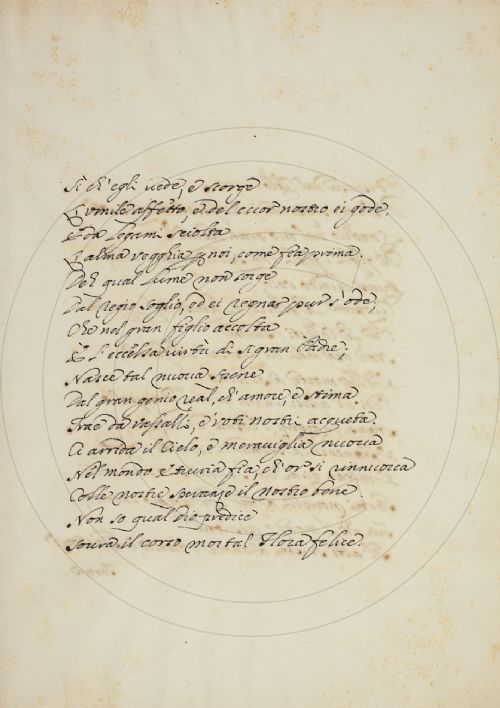 Sì ch'egli vede, e scorge
L'umile affetto, e del cuor nostro ei gode,
E da legami sciolta
L'alma vegghia p noi, come fea prima.
Deh qual lume non sorge
Dal regio soglio, ed ei regnar pur s'ode,
Che nel gran figlio accolta
E' l'eccelsa virtù di sì gran Padre;
Nasce tal nuova spene
Dal gran genio real, ch'amore, e stima
Trae da vassalli, e i voti nostri acqueta.
Ci arrida il Cielo, e meraviglia nuova
Nel mondo fia, ch'or si rinnuova
Colle nostre speranze il nostro bene.
Non so qual dio predice
Sovra il corso mortal Flora felice.